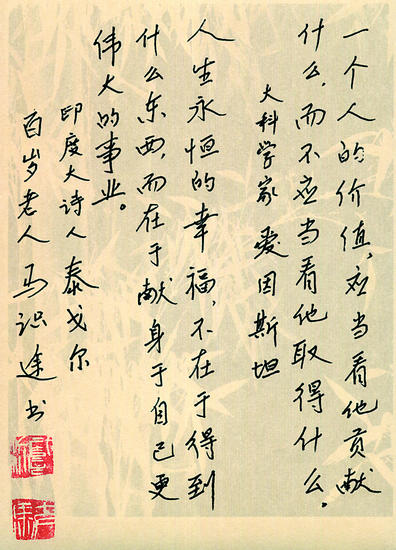 一个人的价值，应当看他贡献
什么，而不应当看他取得什么。
大科学家 爱因斯坦
人生永恒的幸福，不在于得到
什么东西，而在于献身于自己更
伟大的事业。
印度大诗人 泰戈尔
百岁老人 马识途书